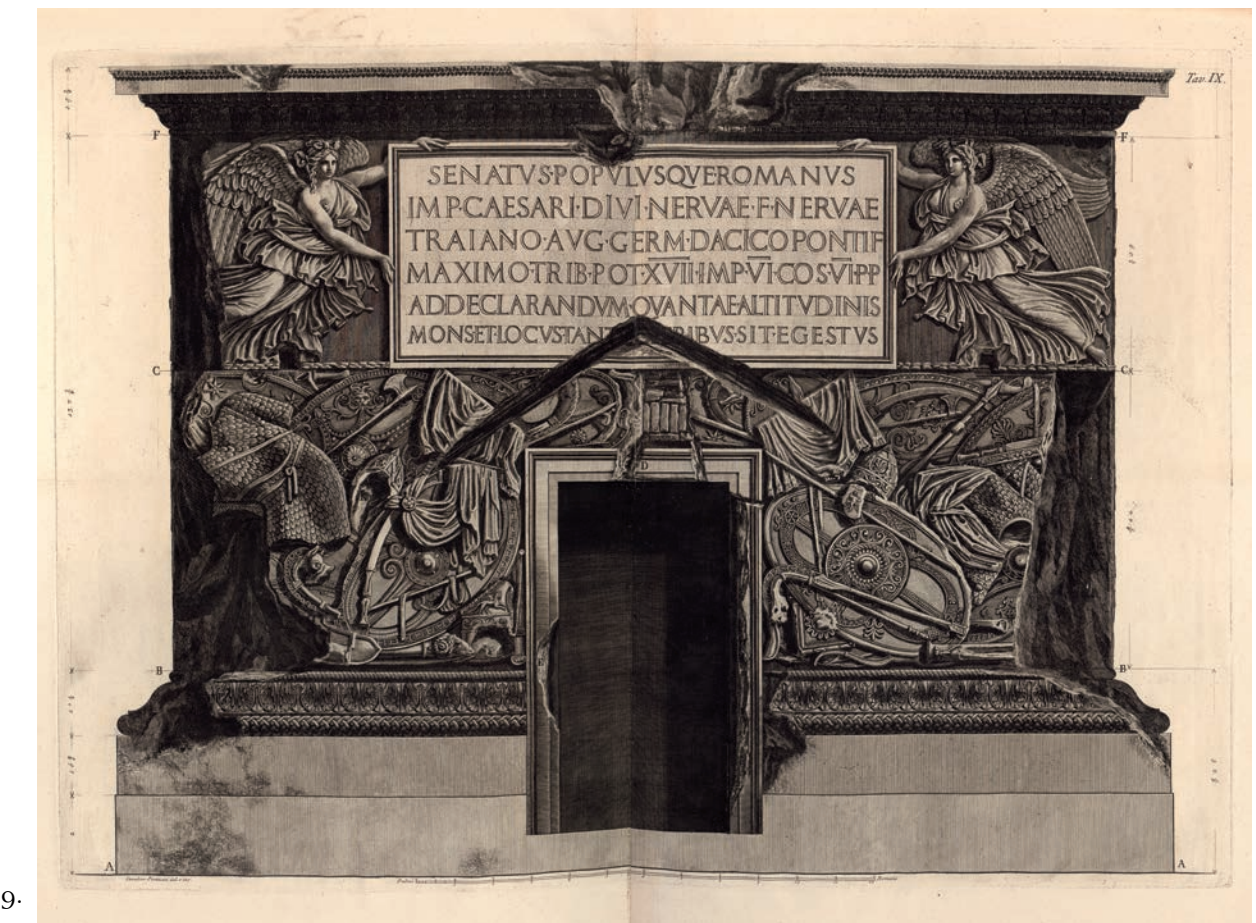 Tav. IX.
F
F
SENATVS·POPVLVSQVEROMANVS
IMP·CAESARI·DIVI·NERVAE·F·NERVAE
TRAIANO·AVG·GERM·DACICO PONTIF
MAXIMO·TRIB·POT·XVII·IMP·VI·COS·VI·PP
ADDECLARANDVM·QVANTAE·ALTITVDINIS
MONSET·LOCVS·TANT RIBVS·SIT·EGESTVS
C
C
D
B
B
A
A
9.